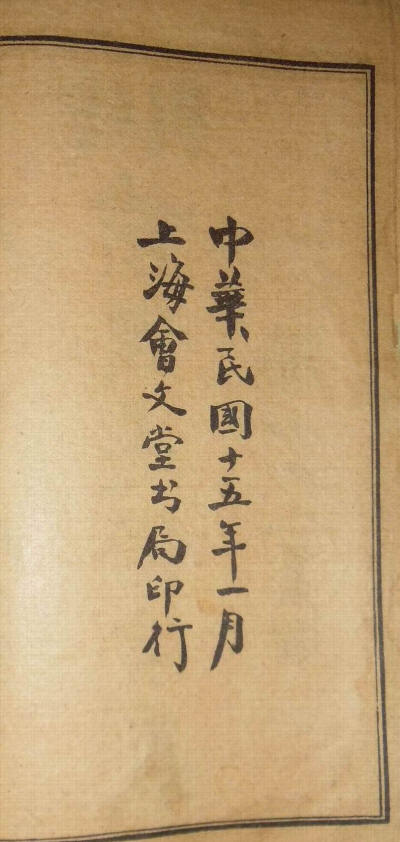 中華民國十五年一月
上海會文堂书局印行